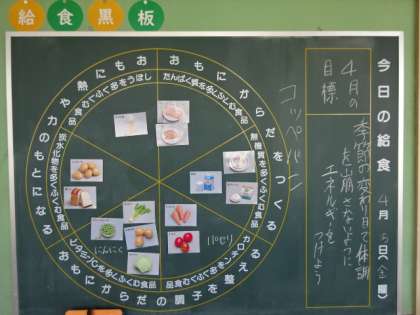 給食黒板
今日の給食 4月5日(金曜)
4月の目標
季節の変わり目で体調
を崩さないように
エネルギーを
つけよう
コッペパン
おもにからだをつくる
たんぱく質を多くふくむ食品
無機質を多くふくむ食品
おもにからだの調子を整える
カロテンを多くふくむ食品
ビタミンCを多くふくむ食品
おもに熱や力のもとになる
炭水化物を多くふくむ食品
しぼうを多くふくむ食品
にんにく
パセリ